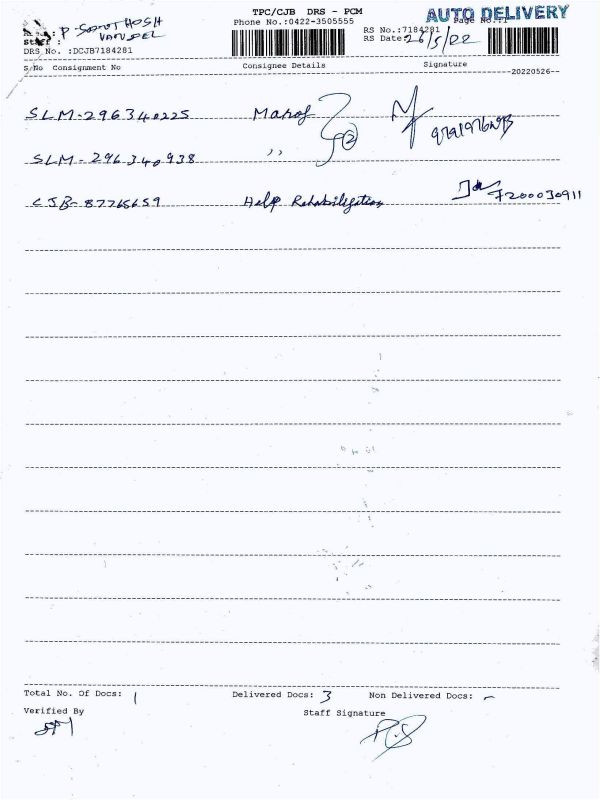 TPC/CJB DRS - PCM
AUTO DELIVERY
Phone No.:0422-3505555
Page No.:1
P-
Staff :
RS No.:7184281
RS Date: 26/5/22
DRS No. :DCJB7184281
S No Consignment No Consignee Details Signature
20220526
SLM-296340225
SLM-296340938 ,,
2
CJB-87765659 Help 7200030911
Total No. Of Docs: 1 Delivered Docs: 3 Non Delivered Docs: -
Verified By Staff Signature